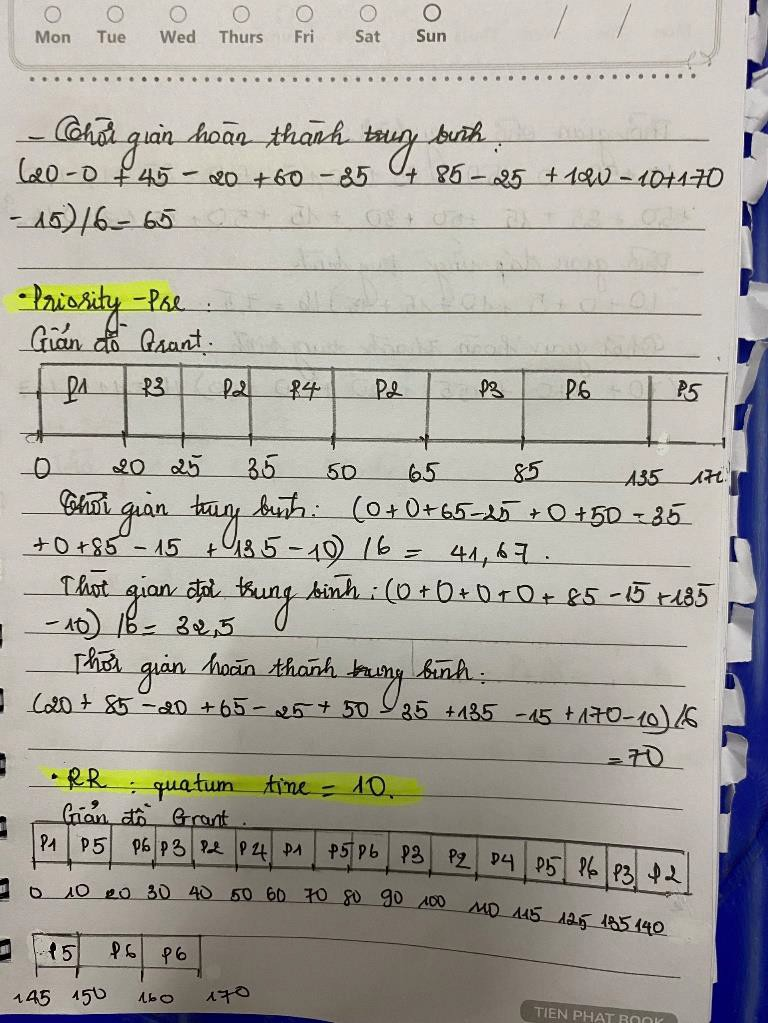 Mon Tue Wed Thurs Fri Sat Sun / /
- Thời gian hoàn thành trung bình:
(20-0 + 45 - 20 + 60 - 35 + 85 - 25 + 120 - 10+170
- 15)/6 = 65
• Priority - Pre :
Giản đồ Grant:
P1 P3 P2 P4 P2 P3 P6 P5
0 20 25 35 50 65 85 135 170
Thời gian trung bình: (0+0+65-25+0+50-35
+0+85-15+135-10) /6 = 41,67.
Thời gian đợi trung bình: (0+0+0+0+85-15+135
-10) /6 = 32,5
Thời gian hoàn thành trung bình:
(20+85-20+65-25+50-35+135-15+170-10)/6
=70
• RR : quatum time = 10.
Giản đồ Grant.
P1 P5 P6 P3 P2 P4 P1 P5 P6 P3 P2 P4 P5 P6 P3 P2
0 10 20 30 40 50 60 70 80 90 100 110 115 125 135 140
P5 P6 P6
145 150 160 170
TIEN PHAT BOOK